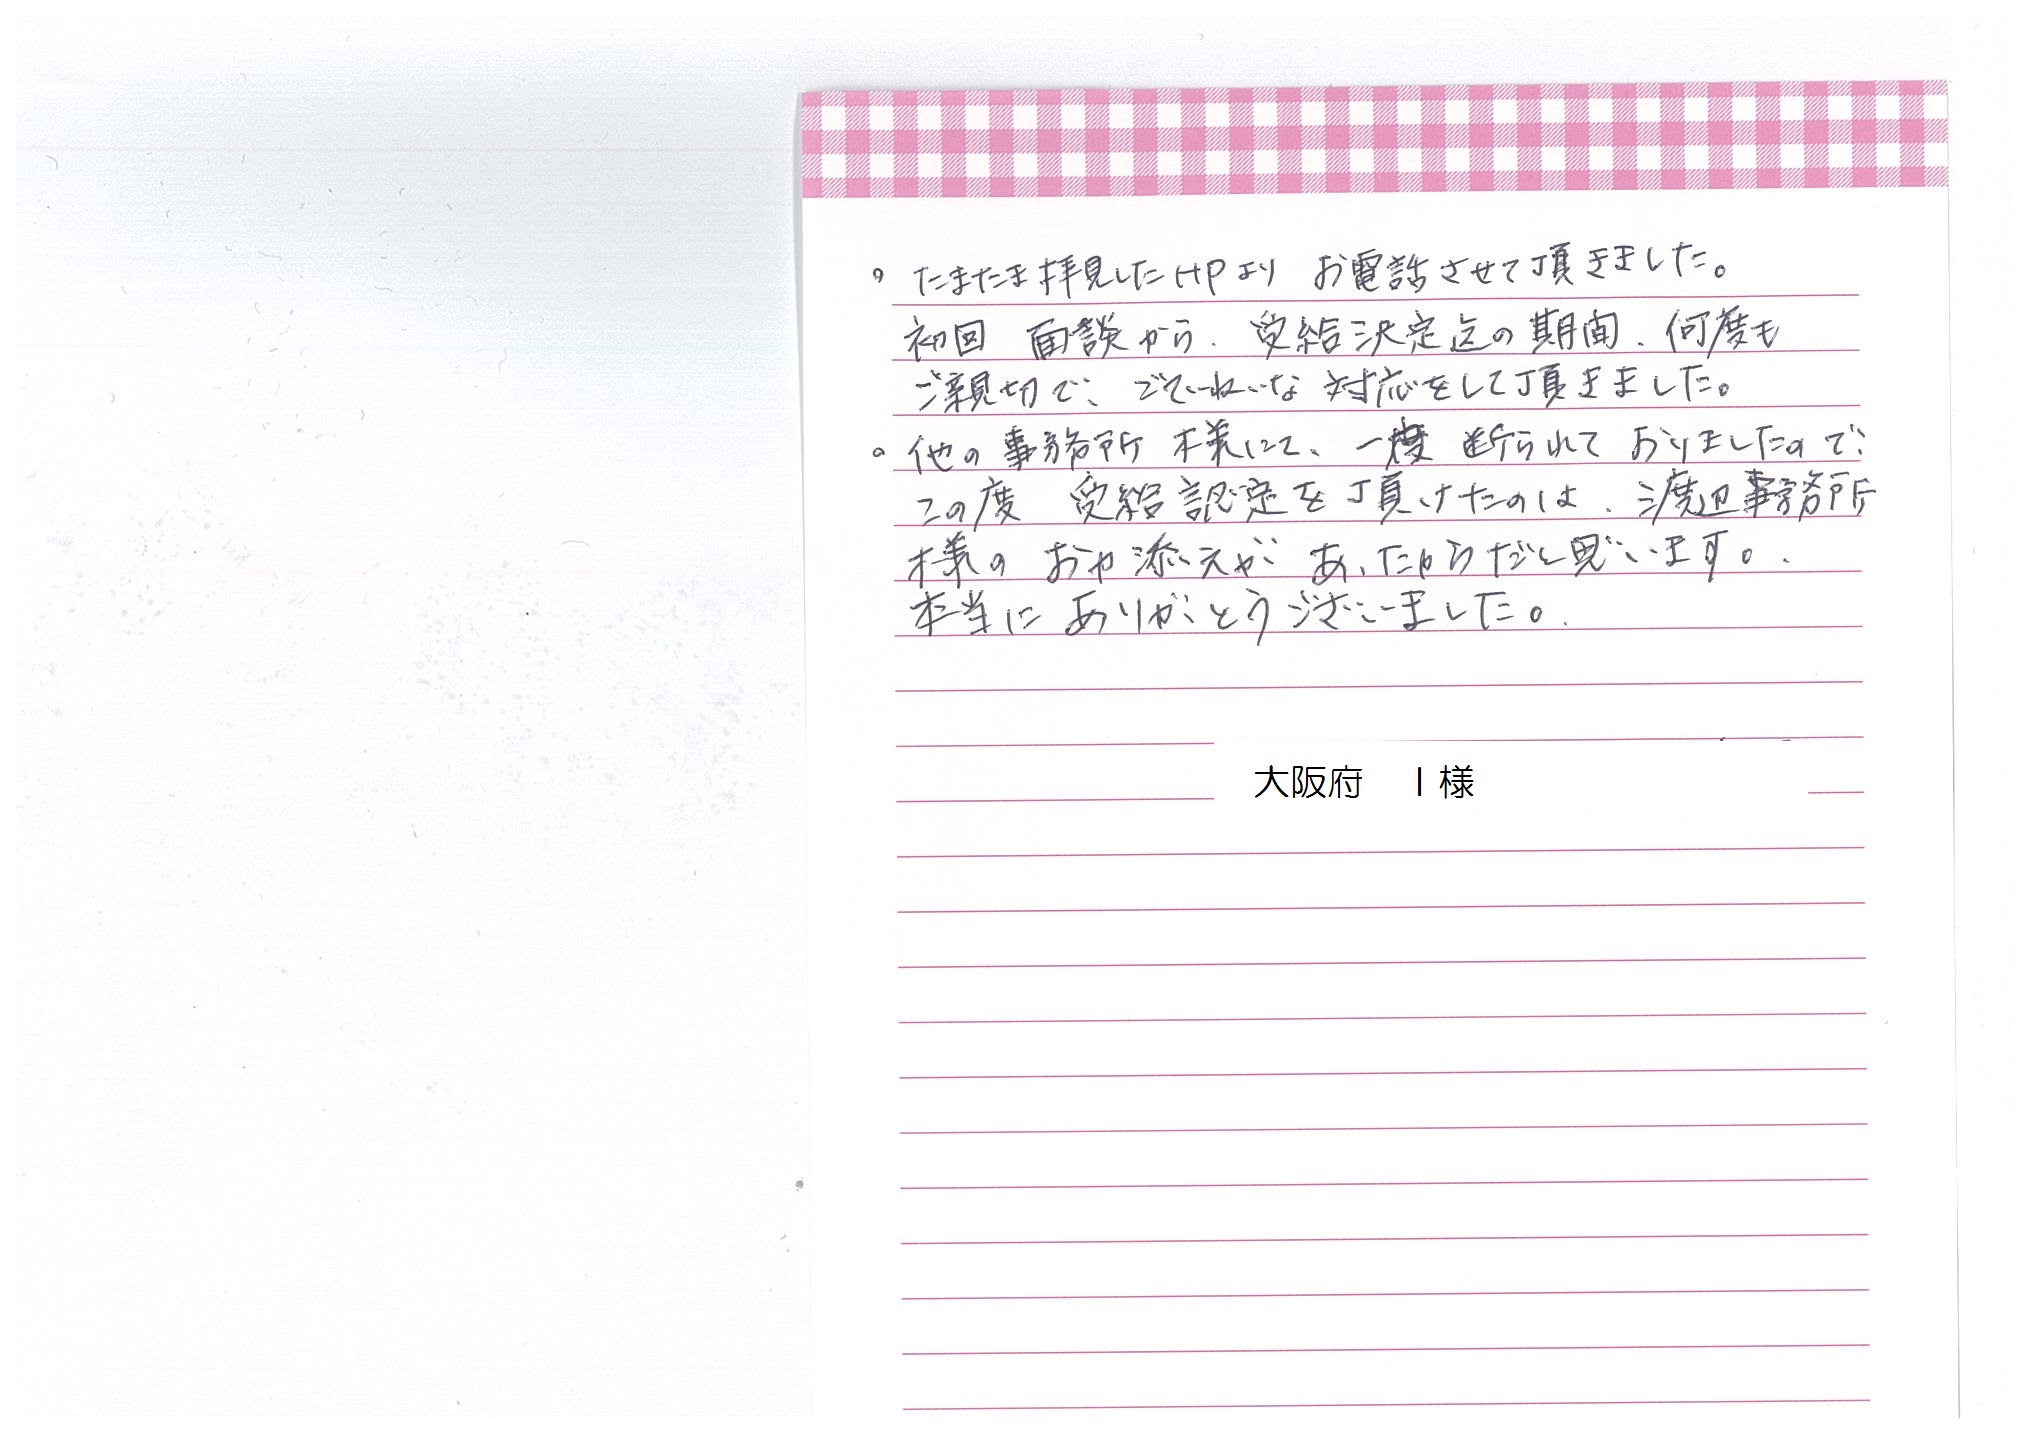 。たまたま拝見したHPより お電話させて頂きました。
初回 面談から、受給決定迄の期間、何度も
ご親切で、ごていねいな 対応をして頂きました。
。他の事務所 様にて、一度 断られて おりましたので、
この度 受給認定を頂けたのは、渡辺事務所
様の お力添えが あったからだと思います。
本当に ありがとうございました。
大阪府 I様